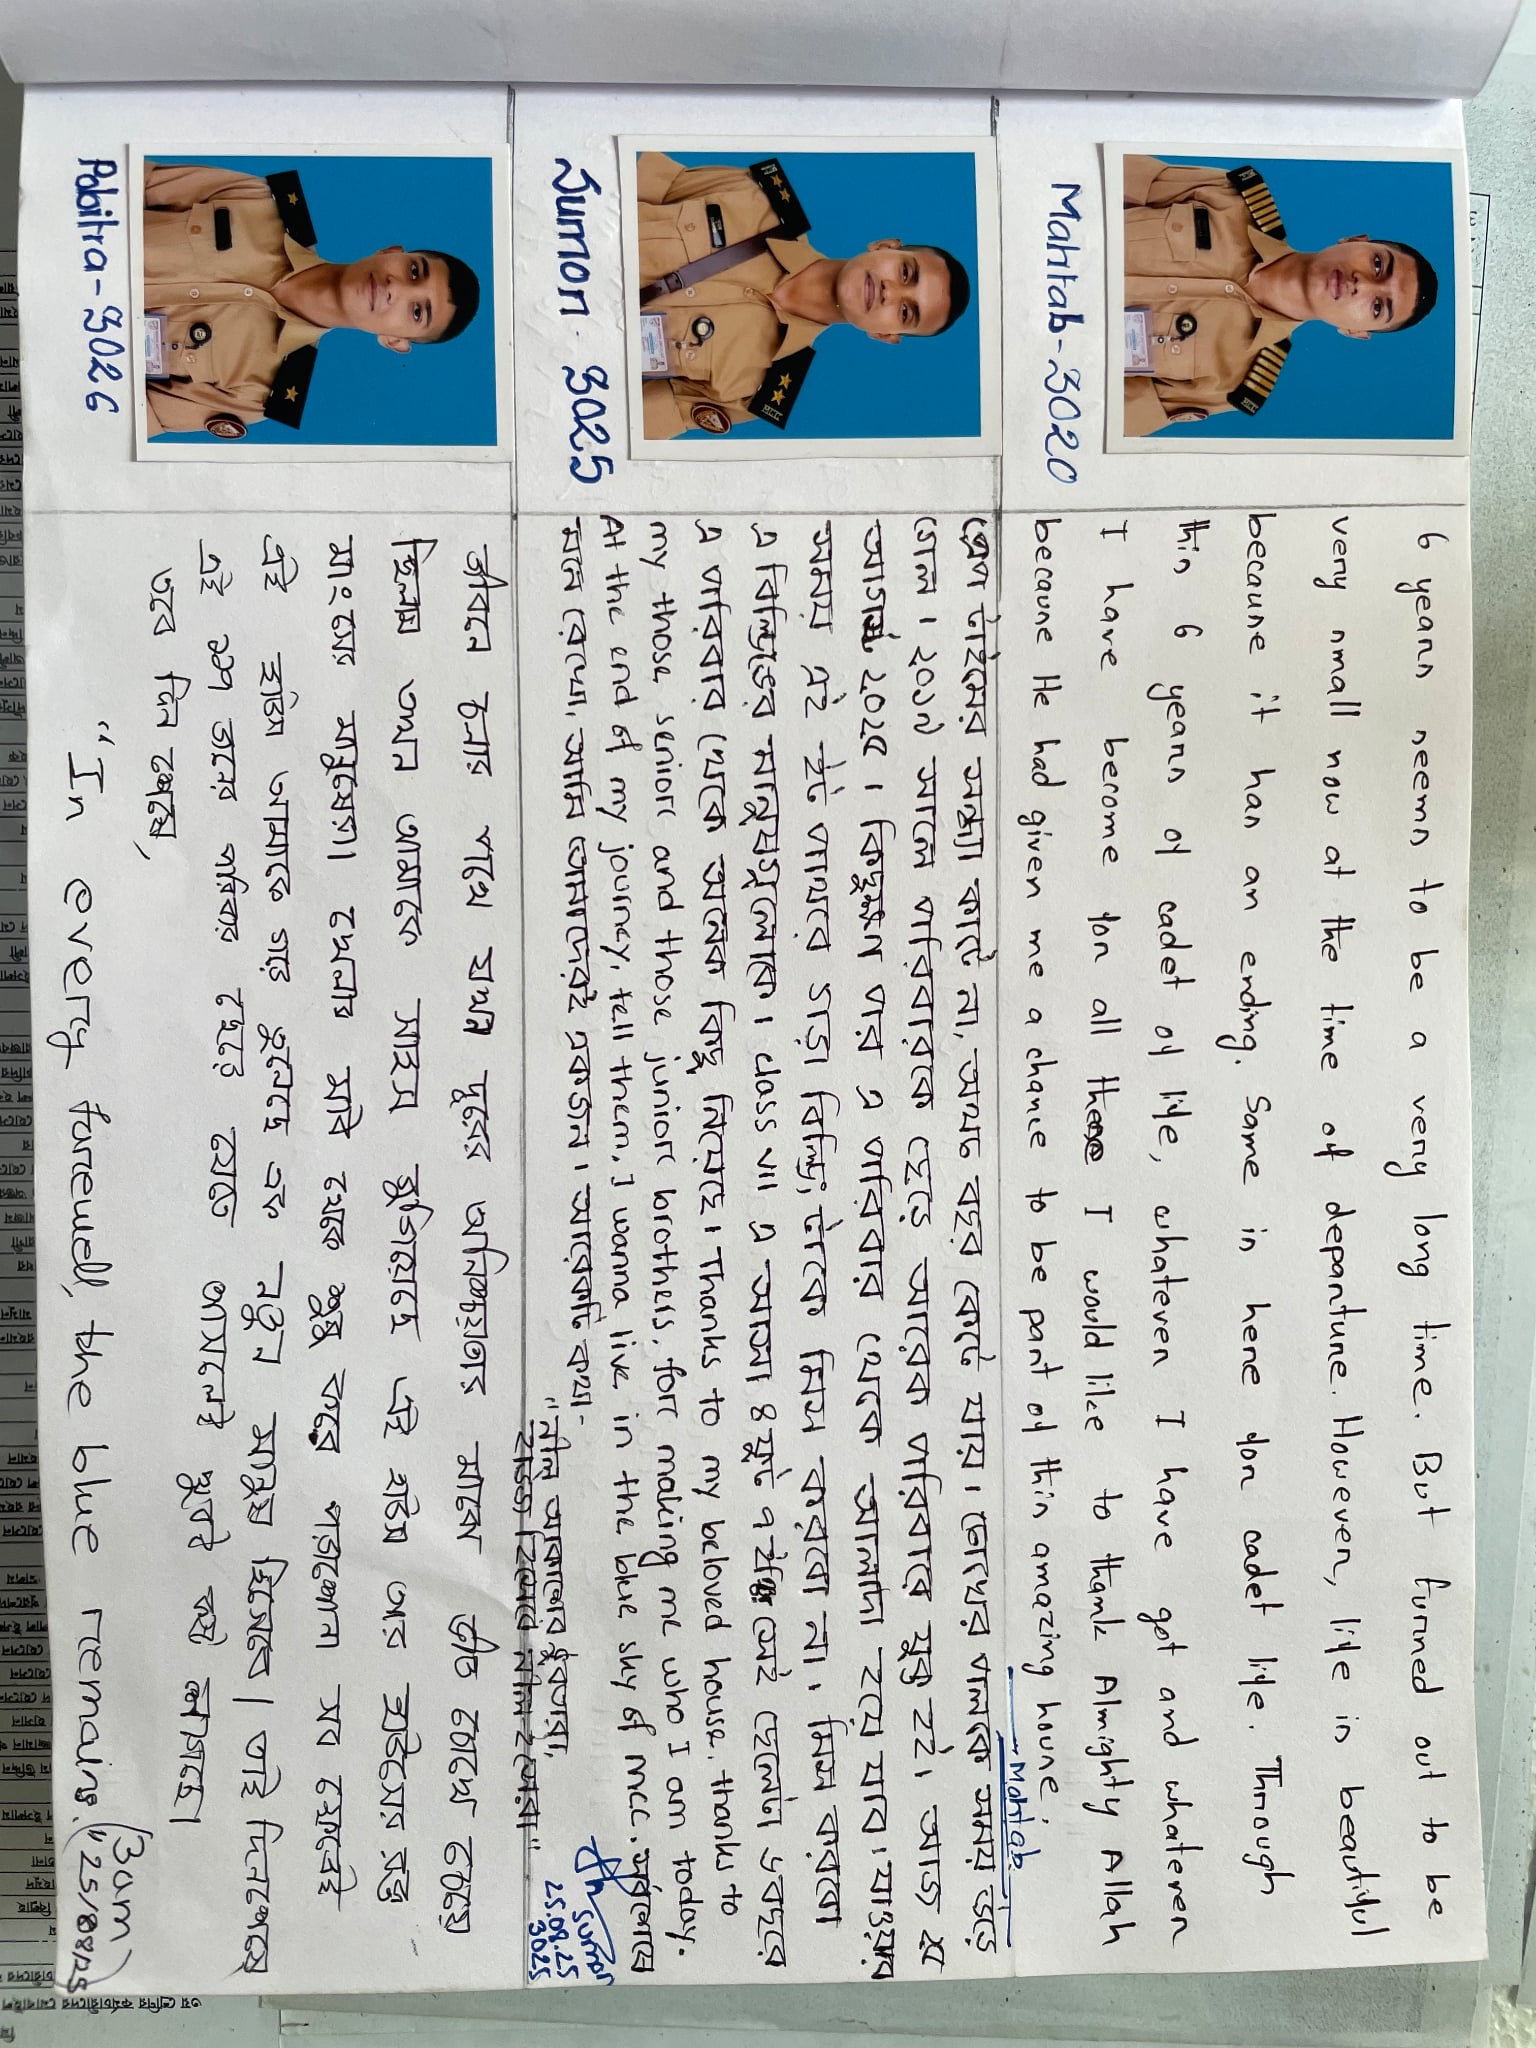 6 years seems to be a very long time. But turned out to be
very small now at the time of departure. However, life is beautiful
because it has an ending. Same is here for cadet life. Through
this 6 years of cadet of life, whatever I have got and whatever
I have become for all these I would like to thank Almighty Allah
because He had given me a chance to be part of this amazing house.
Mahtab
Mahtab-3020
প্রেপ টাইমের সন্ধ্যা কাটে না, অথচ বছর কেটে যায়। চোখের পলকে সময় উড়ে
গেল। ২০১৯ সালে পরিবারকে ছেড়ে আরেক পরিবারে যুক্ত হই। আজ ২৫
আগস্ট ২০২৫। কিছুক্ষণ পর এ পরিবার থেকে আলাদা হয়ে যাব। যাওয়ার
সময় এই ইট পাথরে গড়া বিল্ডিং টাকে মিস করবো না। মিস করবো
এ বিল্ডিঙের মানুষগুলোকে। class VII এ আসা ৪ ফুট ৭ ইঞ্চির সেই ছেলেটা ৬ বছরে
এ পরিবার থেকে অনেক কিছু নিয়েছে। Thanks to my beloved house. thanks to
my those senior and those junior brothers, for making me who I am today.
At the end of my journey, tell them, I wanna live in the blue sky of mcc. সর্বশেষে
মনে রেখো, আমি তোমাদেরই একজন। আরেকটি কথা-
"নীল আকাশের ধ্রুবতারা,
হাউজ হিসেবে নীল ই সেরা"
Sumon
25.08.25
3025
Sumon - 3025
জীবনে চলার পথে যখন দূরের অনিশ্চয়তার মাঝে ভীত চোখে চেয়ে
ছিলাম তখন আমাকে সাহস জুগিয়েছে এই হাউস আর হাউসের রক্ত
মাংসের মানুষেরা। খেলার মাঠ থেকে শুরু করে পড়াশোনা সব ক্ষেত্রেই
এই হাউস আমাকে গড়ে তুলেছে এক নতুন মানুষ হিসেবে। তাই দিনশেষে
এই ১১৭ জনের পরিবার ছেড়ে যেতে আসলেই খুবই কষ্ট লাগছে।
তবে দিন শেষে,
"In every farewell, the blue remains."
(3am
25/08/25)
Pabitra-3026